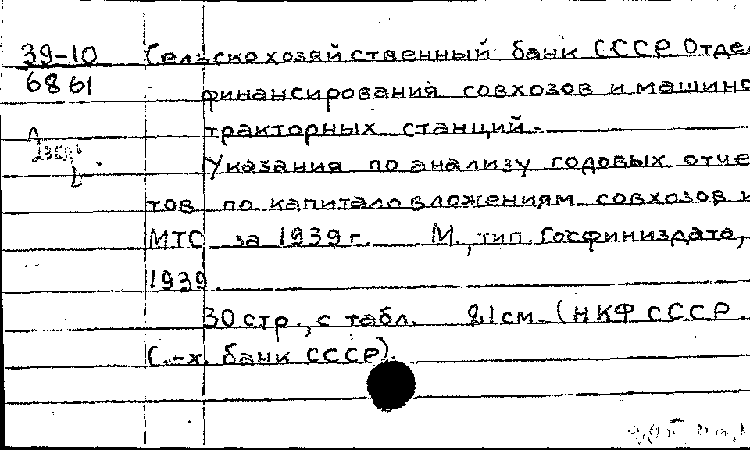 39-10 Сельскохозяйственный банк СССР Отдел
6861 финансирования совхозов и машино
тракторных станций.-
Указания по анализу годовых отче
тов по капиталовложениям совхозов и
МТС за 1939 г. М., тип. Госфиниздата,
1939.
30 стр., с табл. 21 см. (НКФ СССР.
С.-х. банк СССР).